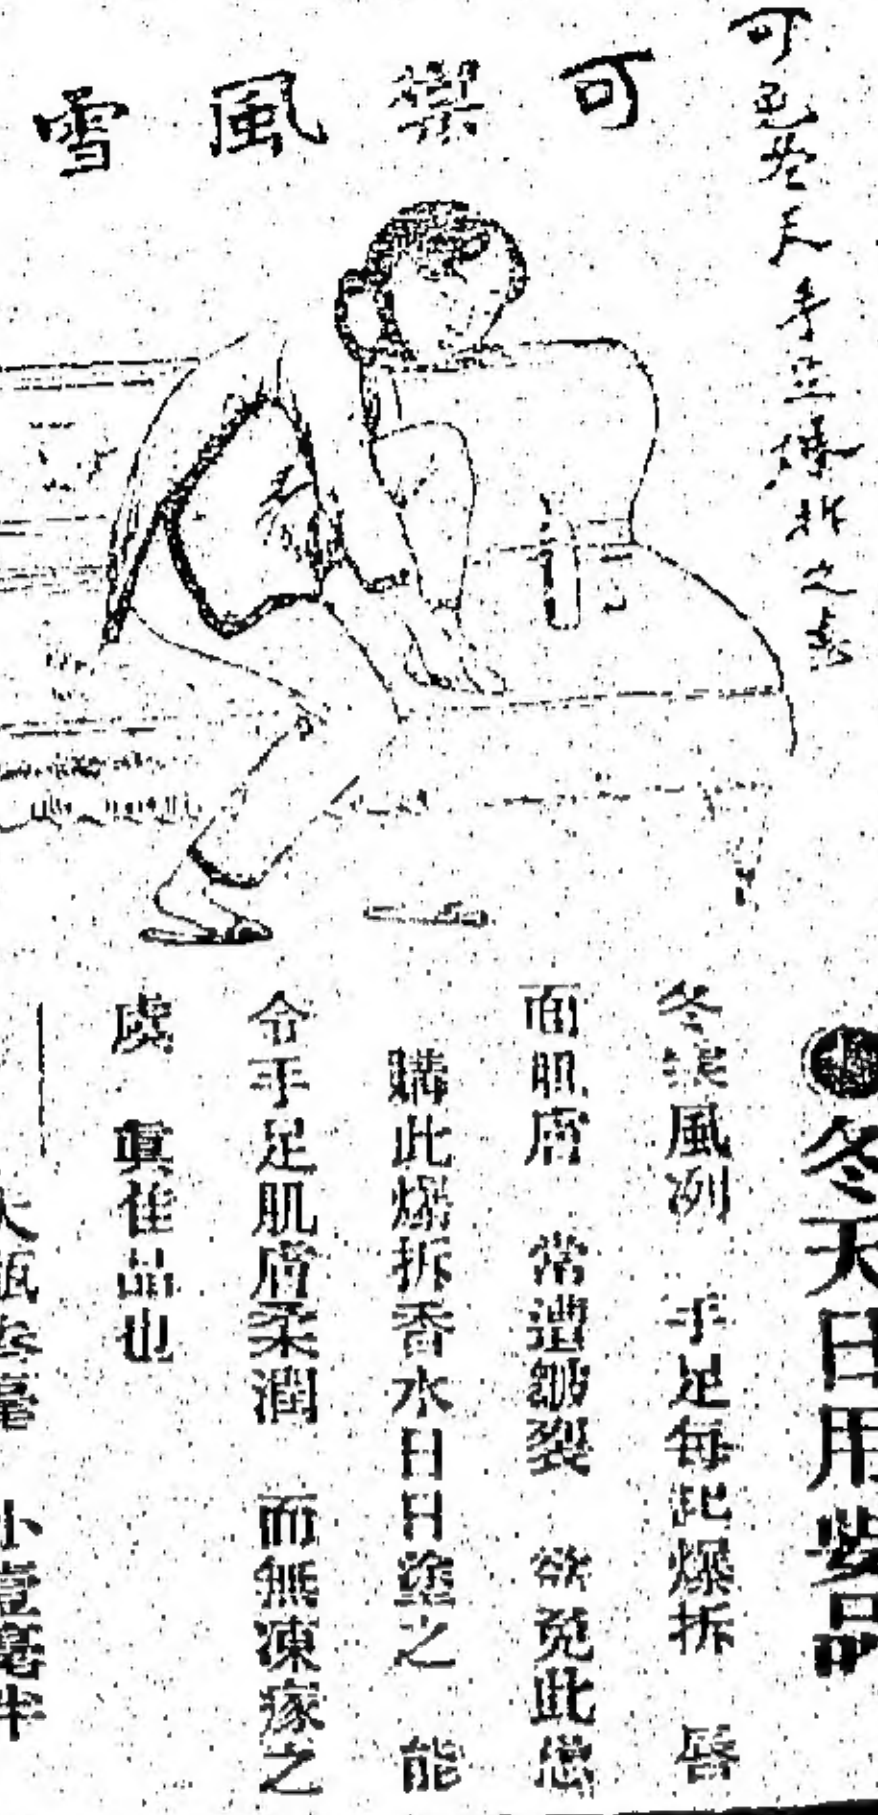 可禦風雪
可免冬天手足爆拆之患
冬天日用要品
冬候風冽 手足每起爆拆 唇
面肌膚 常遭皴裂 欲免此患
購此爆拆香水日日塗之 能
令手足肌膚柔潤 而無凍瘃之
虞 眞佳品也
大瓶壹毫 小壹毫半